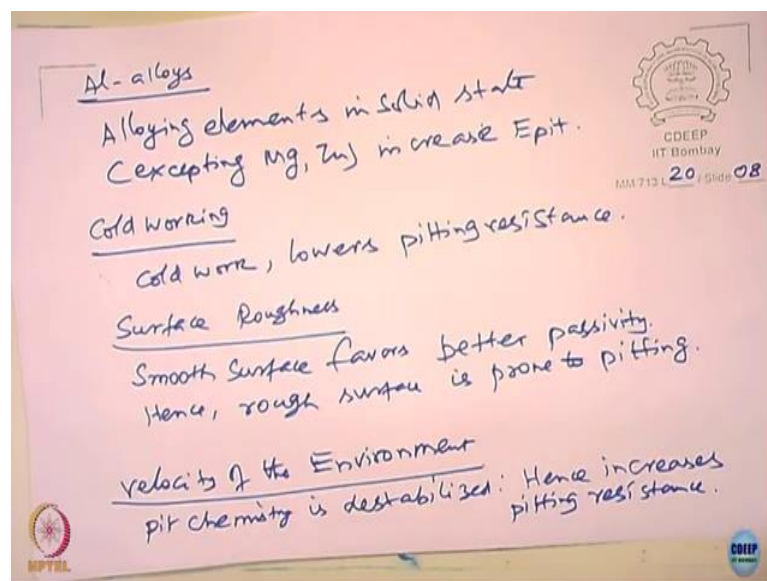 Al-alloys
Alloying elements in Solid state
(excepting Mg, Zn) increase Epit.
CDEEP
IIT Bombay
MM 713 L 20 / Slide 08
Cold Working
Cold work, lowers pitting resistance.
Surface Roughness
Smooth Surface favors better passivity.
Hence, rough surface is prone to pitting.
velocity of the Environment
pit chemistry is destabilized: Hence increases
pitting resistance.
NPTEL
CDEEP
IIT BOMBAY